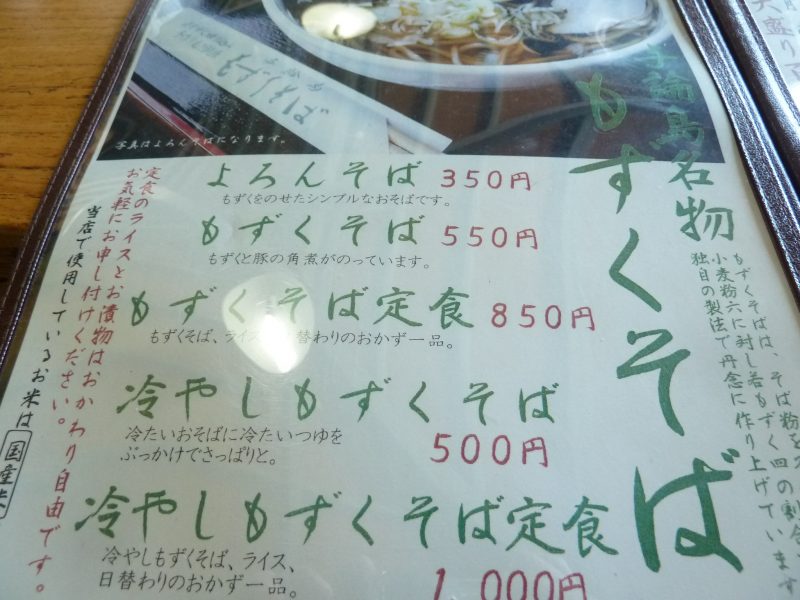 もずくそば
写真はよろんそばになります。
与論島名物
もずくそば
もずくそばは、そば粉を
小麦粉六に対し若もずく四の割合
独自の製法で丹念に作り上げています
よろんそば 350円
もずくをのせたシンプルなおそばです。
もずくそば 550円
もずくと豚の角煮がのっています。
もずくそば定食 850円
もずくそば、ライス、日替わりのおかず一品。
冷やしもずくそば
冷たいおそばに冷たいつゆを
ぶっかけでさっぱりと。
500円
冷やしもずくそば定食
冷やしもずくそば、ライス、
日替わりのおかず一品。
1,000円
定食のライスとお漬物はおかわり自由です。
お気軽にお申し付けください。
当店で使用しているお米は国産米
大盛り